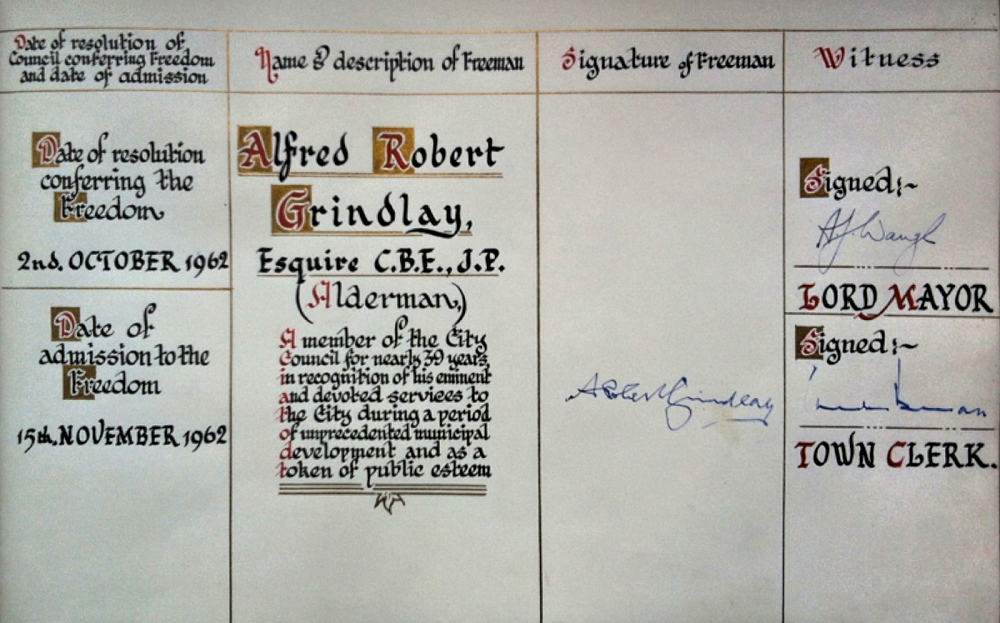 Date of resolution of
Council conferring Freedom
and date of admission
Name & description of Freeman
Signature of Freeman
Witness
Date of resolution
conferring the
Freedom
2nd. OCTOBER 1962
Date of
admission to the
Freedom
15th. NOVEMBER 1962
Alfred Robert
Grindlay,
Esquire C.B.E., J.P.
(Alderman,)
A member of the City
Council for nearly 39 years,
in recognition of his eminent
and devoted services to
the City during a period
of unprecedented municipal
development and as a
token of public esteem
Grindlay
Signed:~
Waugh
LORD MAYOR
Signed:~
TOWN CLERK.